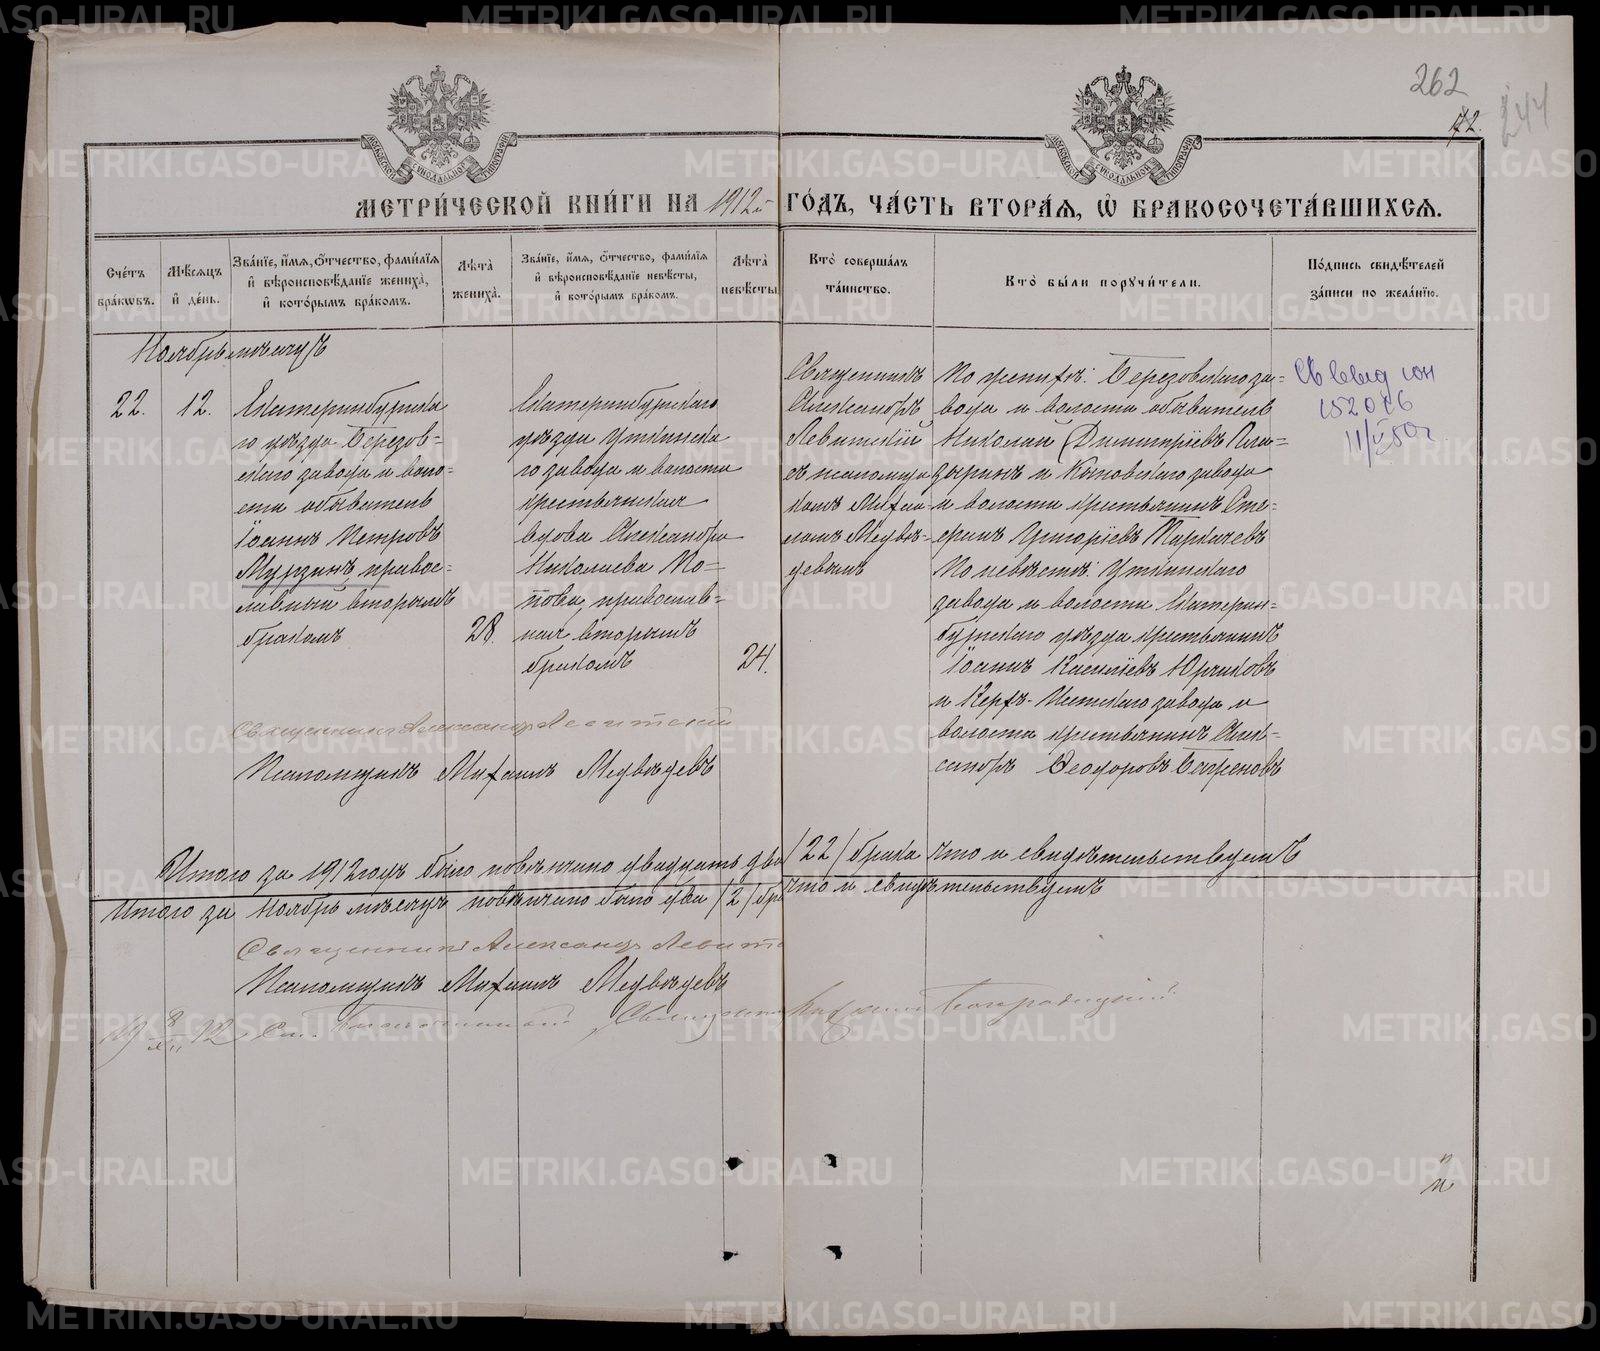 262
172.
244
МОСКОВСКОЙ СѴНОДАЛЬНОЙ ТИПОГРАФІИ
МОСКОВСКОЙ СѴНОДАЛЬНОЙ ТИПОГРАФІИ
МЕТРИ́ЧЕСКОЙ КНИ́ГИ НА 1912й ГО́ДЪ, ЧА́СТЬ ВТОРА́Я, Ѡ҆ БРАКОСОЧЕТА́ВШИХСЯ.
Сче́тъ бра́кѡвъ.
Мѣ́сяцъ и҆ де́нь.
Зва́нїе, и҆́мя, ѻ҆́тчество, фами́лїя и҆ вѣроисповѣ́данїе жениха̀, и҆ кото́рымъ бра́комъ.
Лѣ́та жениха̀.
Зва́нїе, и҆́мя, ѻ҆́тчество, фами́лїя и҆ вѣроисповѣ́данїе невѣ́сты, и҆ кото́рымъ бра́комъ.
Лѣ́та невѣ́сты
Кто̀ соверша́лъ та́инство.
Кто̀ бы́ли порꙋчи́тели.
По́дпись свидѣ́телей за́писи по жела́нїю.
Ноябрь мѣсяцъ
22.
12.
Екатеринбургска
го уѣзда Березов-
скаго завода и воло-
сти обыватель
Іоаннъ Петровъ
Мурзинъ, правос-
лавный вторымъ
бракомъ
28.
Екатеринбургскаго
уѣзда Уткинска
го завода и волости
крестьянская
вдова Александра
Николаева По-
пова, православ-
ная вторымъ
бракомъ
24.
Священникъ
Александръ
Левитскій
съ псаломщи
комъ Михаи-
ломъ Медвѣ-
девымъ
По женихѣ: Березовскаго за-
вода и волости обыватель
Николай Димитріевъ Пла-
зыринъ и Кыновскаго завода
и волости крестьянинъ Сте-
Григоріевъ
По невѣстѣ: Уткинскаго
завода и волости Екатерин-
бургскаго уѣзда крестьянинъ
Іоаннъ Васильевъ Юрчиковъ
и Верхъ-Исетскаго завода и
волости крестьянинъ Алек-
сандръ Ѳеодоровъ Баженовъ
Священникъ Александръ Левитскій
Псаломщикъ Михаилъ Медвѣдевъ
Итого за 1912 годъ было повѣнчано двадцать два /22/ брака что и свидѣтельствуемъ
Итого за ноябрь мѣсяцъ повѣнчано было два /2/ бра что и свидѣтельствуемъ
Священникъ Александръ Левит
Псаломщикъ Михаилъ Медвѣдевъ
19 8/XII 12
METRIKI.GASO-URAL.RU